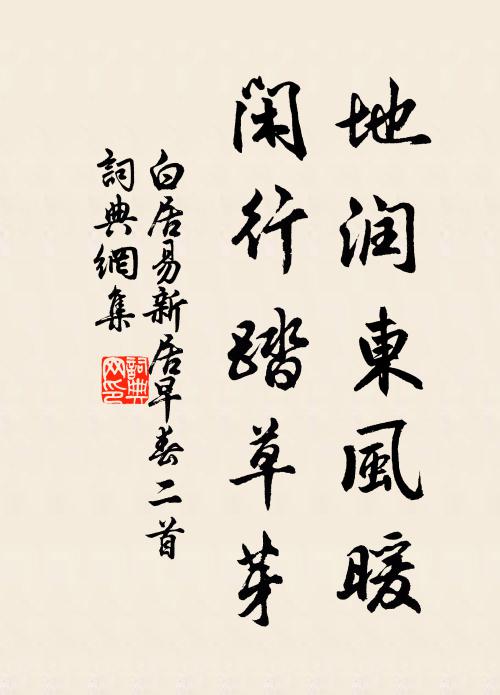 地润東風暖
闲行踏草芽
白居易新居早春二首
詞典網集
詞典
网印